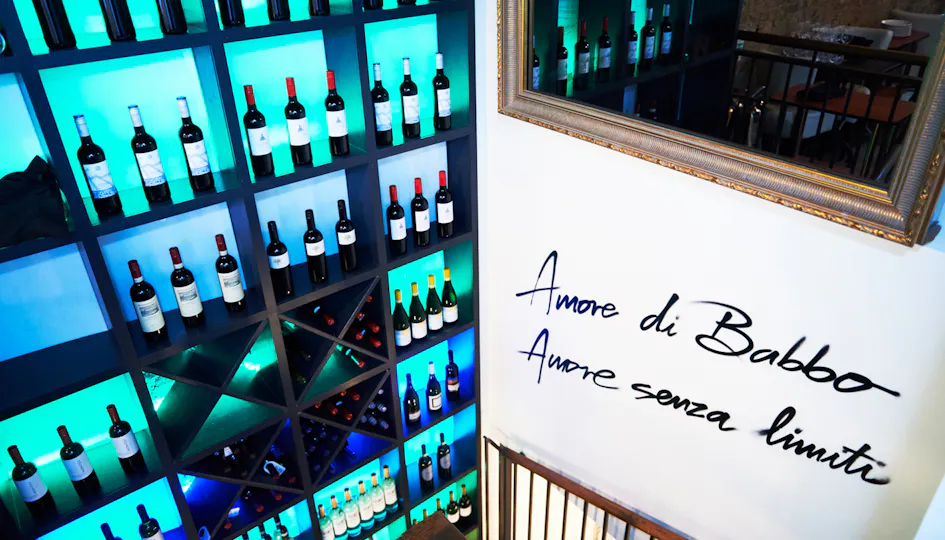 Amore di Babbo
Amore senza limiti